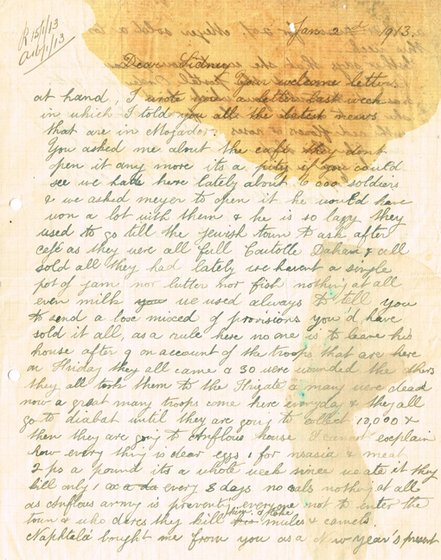 R 15/1/13
A 16/1/13
Jan. 2nd 1913.
Dear Sidney
Your welcome letter
at hand, I wrote you a letter last week
in which I told you all the latest news
that are in Mogador.
You asked me about the café they don't
open it any more its a pity if you could
see we had here lately about 6000 soldiers
& we asked meyer to open it he would have
won a lot with them & he is so lazy they
used to go till the Jewish town to ask after
café as they were all full Dahan & all
sold all they had lately we havent a single
pot of jam nor butter nor fish nothing at all
even milk you we used always to tell you
to send a love mixed of provisions you'd have
sold it all, as a rule here no one is to leave his
house after 9 on account of the troops that are here
on Friday they all came & 30 were wounded the others
they all took them to the Frigate a many were dead
now a great many troops come here everyday & they all
go to diabat until they are going to collect 12,000 &
then they are going to house I cannot explain
how every thing is dear eggs 1 for & meat
2 ps a pound its a whole week since we ate it they
kill only 1 every 8 days no nothing at all
as army is preventing everyone not to enter the
town & who dares they kill mules & camels.
Naphtala bought me from you as a New year's present